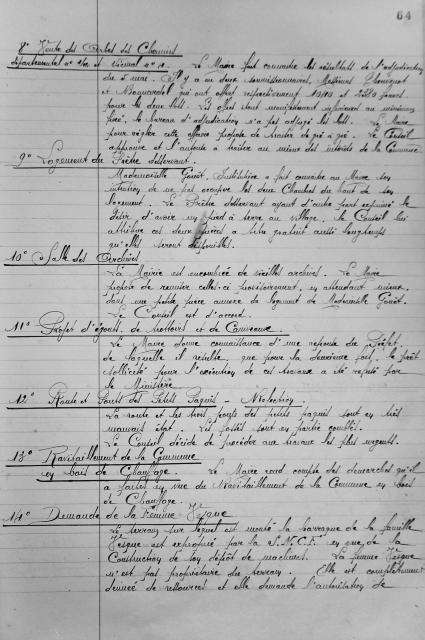 64
8° Vente des Arbres des Chemins
départemental n° et vicinal n° . Le Maire fait connaître les résultats de l'adjudication
du 5 mai. Il y a eu deux soumissionnaires, Messieurs
et qui ont offert respectivement et francs
pour les deux lots. Les offres étant manifestement inférieures au minimum
fixé, le bureau d'adjudication n'a pas adjugé les lots. Le Maire
pour régler cette affaire propose de traiter de gré à gré. Le Conseil
approuve et l'autorise à traiter au mieux des intérêts de la Commune
9° Logement du Prêtre desservant.
Mademoiselle Gouët, Institutrice a fait connaître au Maire son
intention de ne pas occuper les deux Chambres du haut de son
logement. Le Prêtre desservant ayant d'autre part exprimé le
désir d'avoir un pied à terre au village, le Conseil lui
attribue ces deux pièces à titre gratuit aussi longtemps
qu'elles seront
10° Salle des Archives
La Mairie est encombrée de vieilles archives. Le Maire
propose de remiser celles-ci provisoirement, en attendant mieux,
dans une petite pièce annexe du logement de Mademoiselle Gouët.
Le Conseil est d'accord.
11° Projet d'égouts, de trottoirs et de Caniveaux.
Le Maire donne connaissance d'une réponse du Préfet,
de laquelle il résulte, que pour la deuxième fois, le prêt
sollicité pour l'exécution de ces travaux a été refusé par
le Ministère.
12° Route et Ponts des Petits Paquis - Réfection.
La route et les trois ponts des petits paquis sont en très
mauvais état. Les fossés sont en partie comblés.
Le Conseil décide de procéder aux travaux les plus urgents.
13° Ravitaillement de la Commune
en bois de Chauffage. Le Maire rend compte des démarches qu'il
a faites en vue du Ravitaillement de la Commune en bois
de Chauffage.
14° Demande de la Femme
Le terrain sur lequel est monté la barraque de la famille
est exproprié par la S.N.C.F. en vue de la
Construction de son dépôt de machines. La femme
n'est pas propriétaire du terrain. Elle est complètement
dénuée de ressources et elle demande l'autorisation de